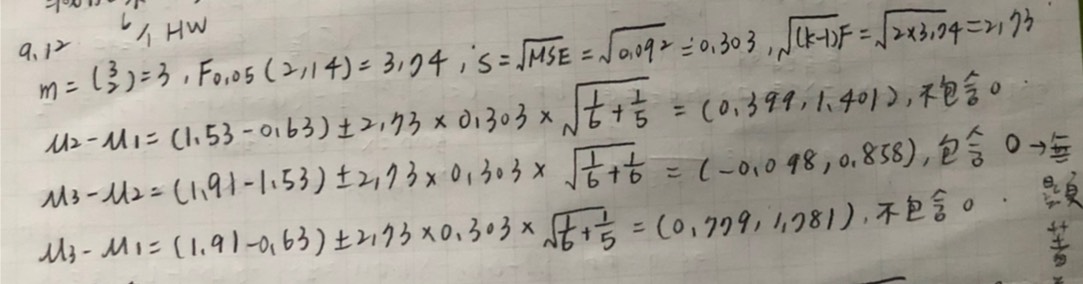 6/1 HW
9.12
m = (3 2) = 3, F0.05 (2,14) = 3.74 ; S = √MSE = √0.092 ≐ 0.303, √(k-1)F = √2×3.74 = 2.73
μ2 - μ1 = (1.53 - 0.63) ± 2.73 × 0.303 × √1/6 + 1/5 = (0.399, 1.401), 不包含 0.
μ3 - μ2 = (1.91 - 1.53) ± 2.73 × 0.303 × √1/6 + 1/6 = (-0.098, 0.858), 包含 0 → 無顯著
μ3 - μ1 = (1.91 - 0.63) ± 2.73 × 0.303 × √1/6 + 1/5 = (0.779, 1.781), 不包含 0.